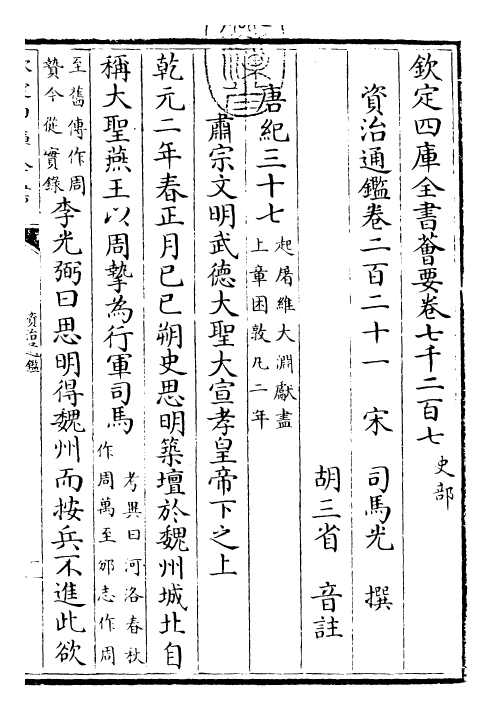 欽定四庫全書薈要卷七千二百七 史部
資治通鑑卷二百二十一 宋 司馬光 撰
胡三省 音註
唐紀三十七 起屠維大淵獻盡上章困敦凡二年
肅宗文明武德大聖大宣孝皇帝下之上
乾元二年春正月己已朔史思明築壇於魏州城北自
稱大聖燕王以周摯為行軍司馬 考異曰河洛春秋作周萬至邠志作周
至舊傳作周贄今從實錄 李光弼曰思明得魏州而按兵不進此欲
資治通鑑